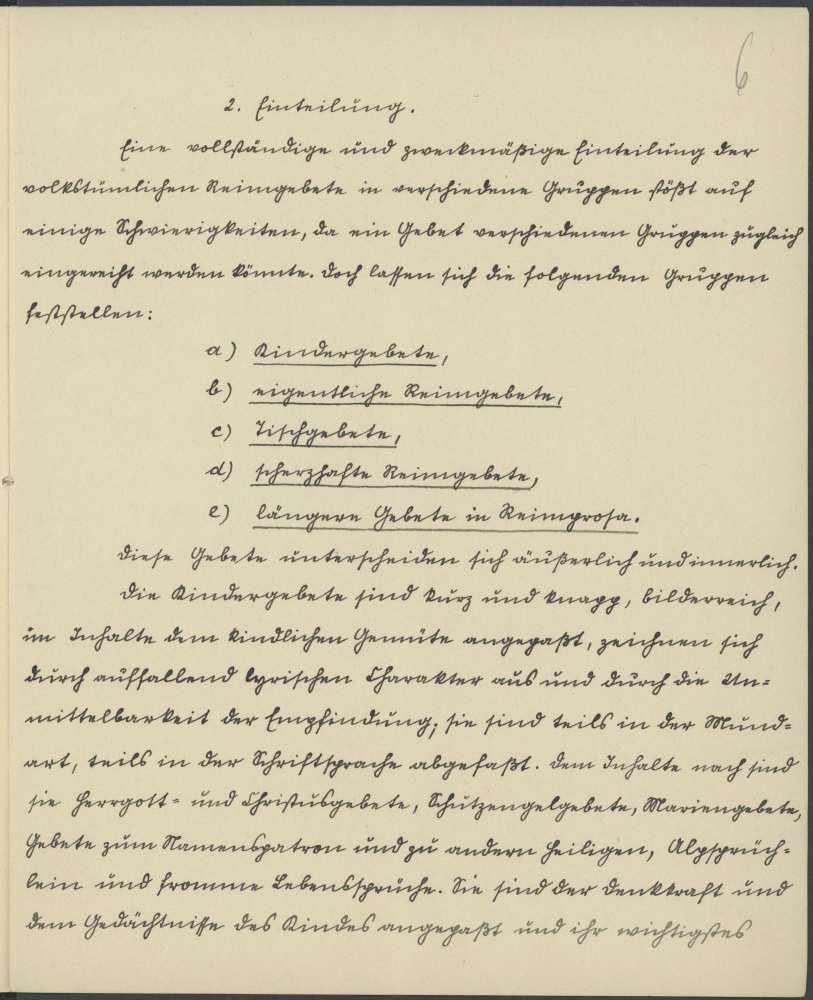 6
2. Einteilung.
Eine vollständige und zweckmäßige Einteilung der
volkstümlichen Reimgebete in verschiedene Gruppen stößt auf
einige Schwierigkeiten, da ein Gebet verschiedenen Gruppen zugleich
eingereiht werden könnte. Doch lassen sich die folgenden Gruppen
feststellen:
a) Kindergebete,
b) eigentliche Reimgebete,
c) Tischgebete,
d) scherzhafte Reimgebete,
e) längere Gebete in Reimprosa.
Diese Gebete unterscheiden sich äußerlich und innerlich.
Die Kindergebete sind kurz und knapp, bilderreich,
im Inhalte dem kindlichen Gemüte angepaßt, zeichnen sich
durch auffallend lyrischen Charakter aus und durch die Un=
mittelbarkeit der Empfindung; sie sind teils in der Mund=
art, teils in der Schriftsprache abgefaßt. Dem Inhalte nach sind
sie Herrgott= und Christusgebete, Schutzengelgebete, Mariengebete,
Gebete zum Namenspatron und zu andern Heiligen, Alpsprüch=
lein und fromme Lebenssprüche. Sie sind der Denkkraft und
dem Gedächtnisse des Kindes angepaßt und ihr wichtigstes